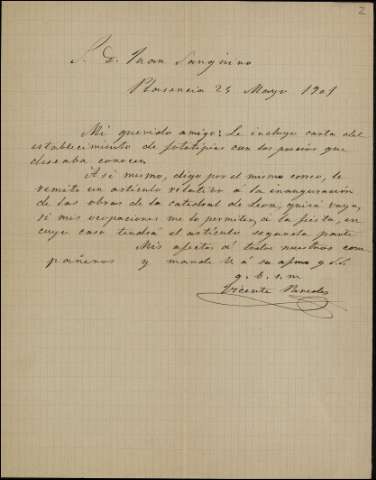 2
S. D. Juan Sanguino
Plasencia 25 Mayo 1901
Mi querido amigo: Le incluyo carta del
establecimiento de fototipias con los precios que
deseaba conocer.
Así mismo, digo por el mismo correo, le
remito un artículo relativo á la inauguración
de las obras de la catedral de Leon, quizá vaya,
si mis ocupaciones me lo permiten, á la fiesta, en
cuyo caso tendrá el artículo segunda parte.
Mis afectos á todos nuestros com
pañeros y mande V. á su afmo
q. b. s. m
Vicente Paredes